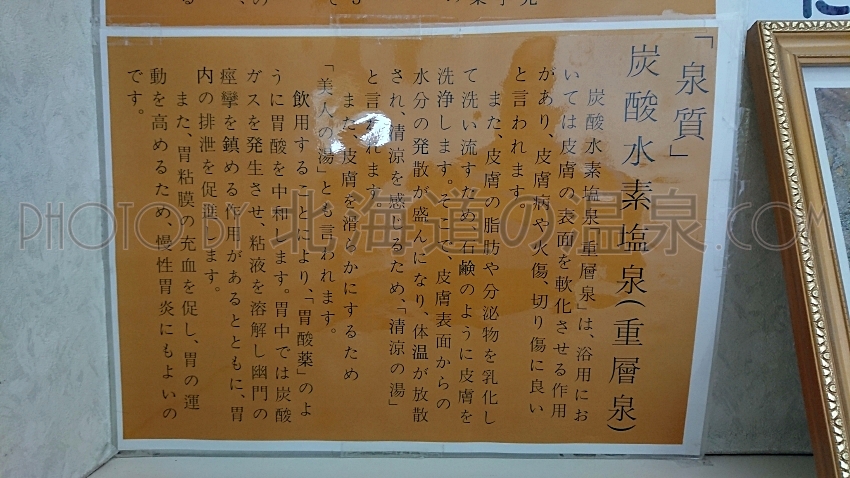 「泉質」
炭酸水素塩泉(重層泉)
炭酸水素塩泉、重層泉」は、浴用にお
いては皮膚の、表面を軟化させる作用
があり、皮膚病や火傷、切り傷に良い
と言われます。
また、皮膚の脂肪や分泌物を乳化し
て洗い流すため、石鹸のように皮膚を
洗浄します。そこで、皮膚表面からの
水分の発散が盛んになり、体温が放散
され、清涼を感じるため、「清涼の湯」
と言われます。
また、皮膚を滑らかにするため
「美人の湯」とも言われます。
飲用することにより、「胃酸薬」のよ
うに胃酸を中和します。胃中では炭酸
ガスを発生させ、粘液を溶解し幽門の
痙攣を鎮める作用があるとともに、胃
内の排泄を促進します。
また、胃粘膜の充血を促し、胃の運
動を高めるため、慢性胃炎にもよいの
です。
PHOTO BY 北海道の温泉.COM